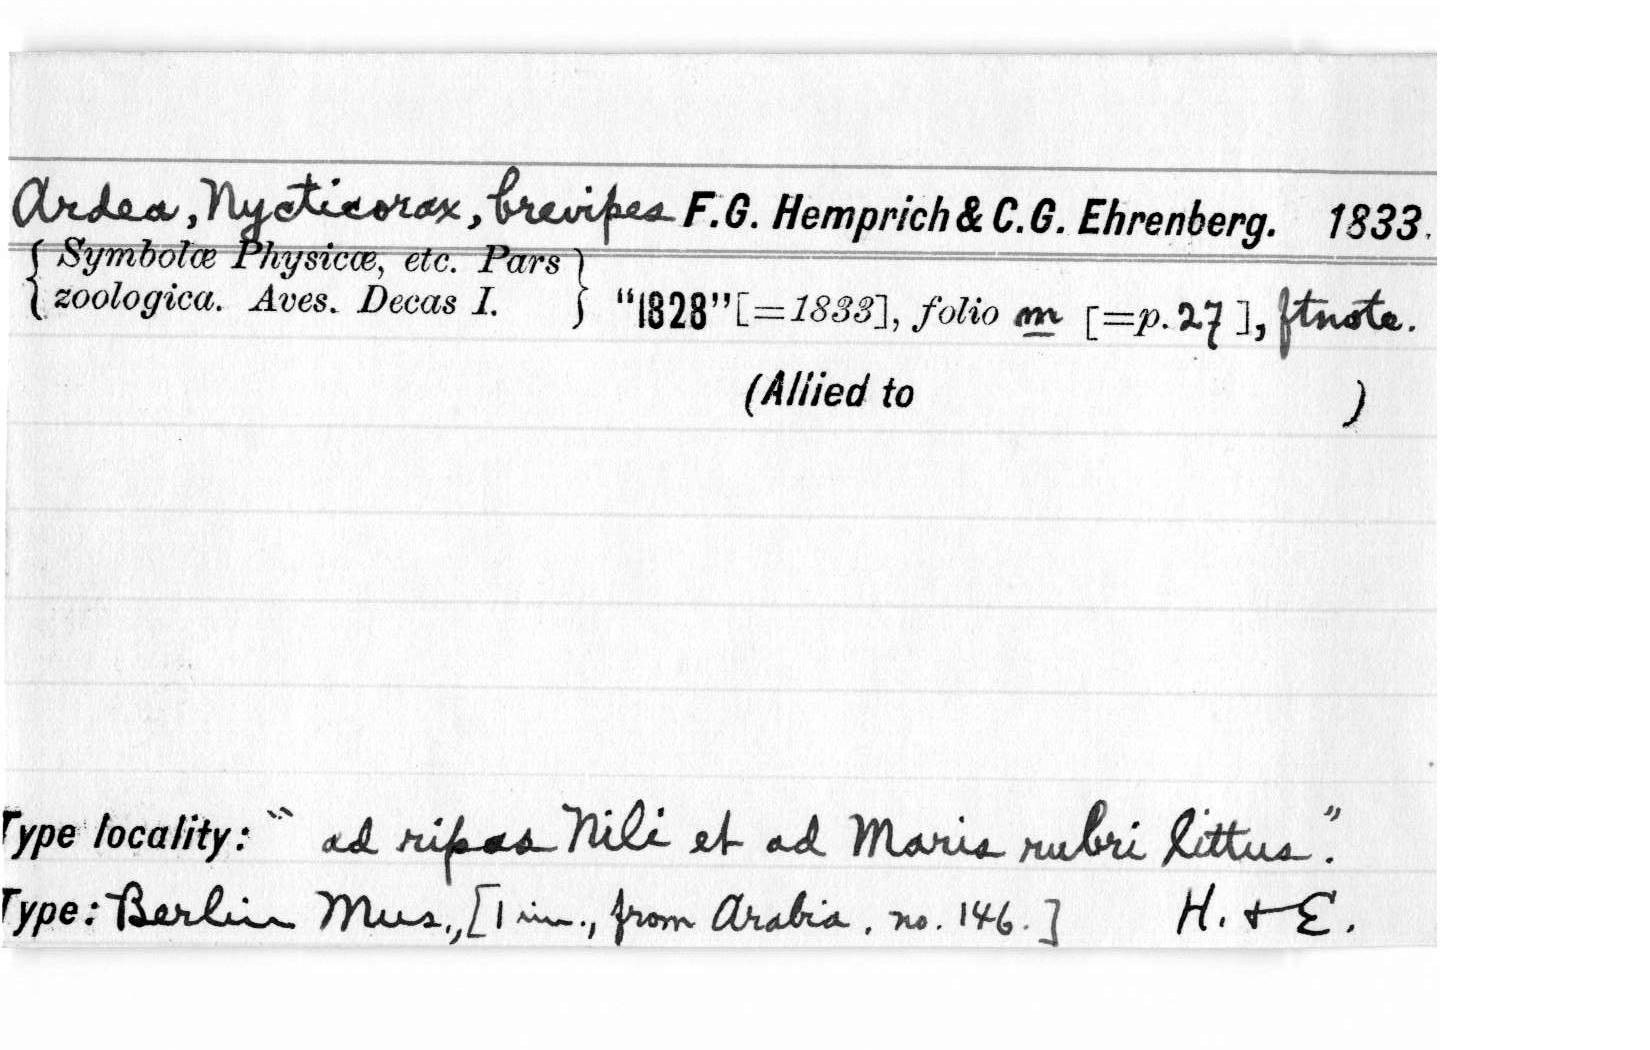 Ardea, Nycticorax, brevipes F.G. Hemprich & C.G. Ehrenberg. 1833.
{ Symbolæ Physicæ, etc. Pars zoologica. Aves. Decas I. } "1828" [=1833], folio m [=p. 27], ftnote.
(Allied to )
Type locality: "ad ripas Nili et ad Maris rubri littus."
Type: Berlin Mus., [1 im., from Arabia, no. 146.] H. + E.